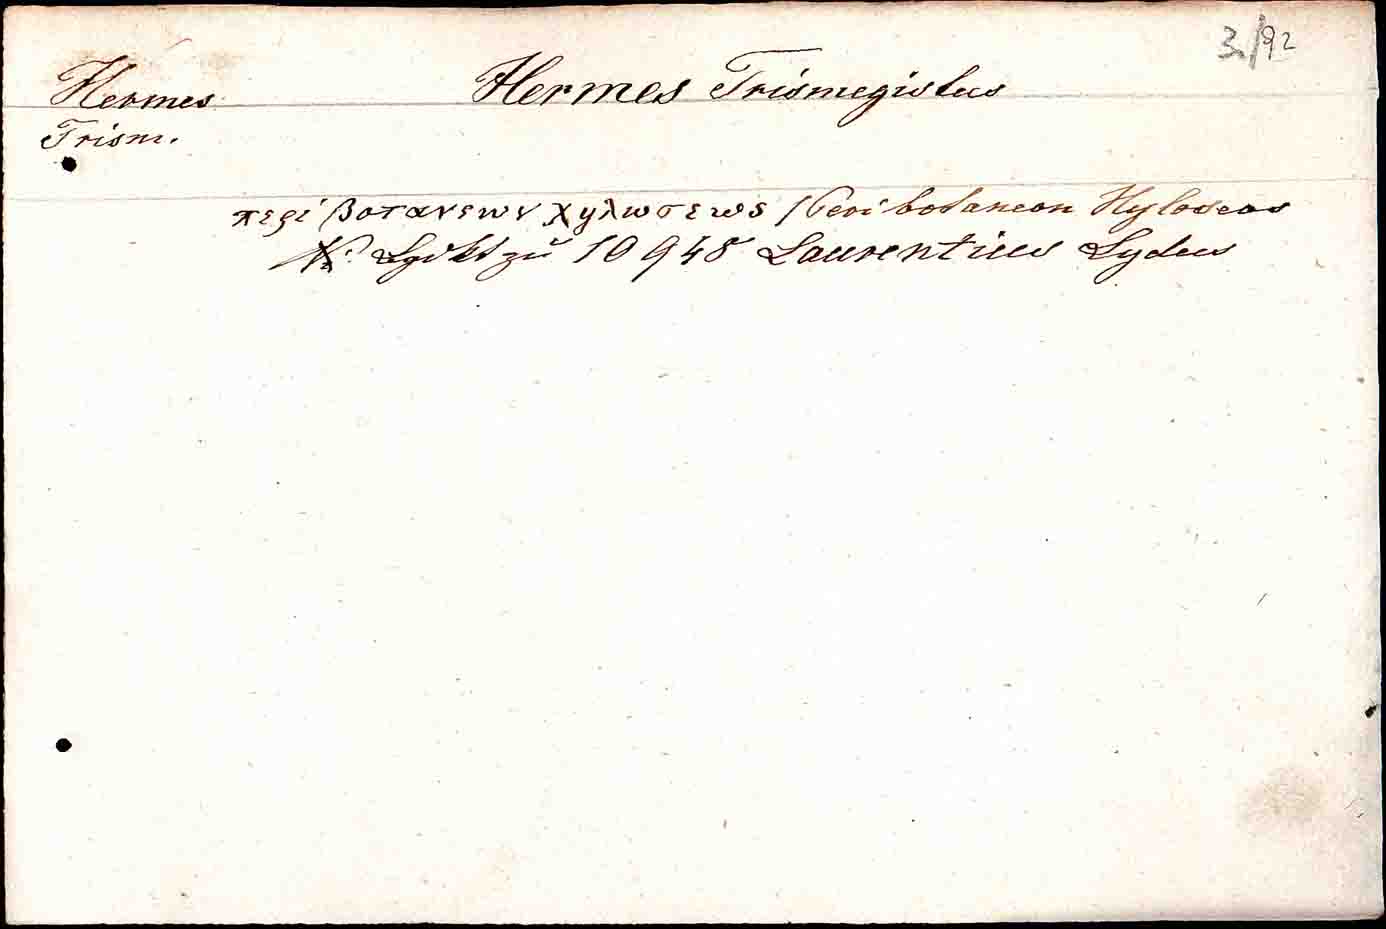 3/92
Hermes Hermes Trismegistus
Trism.
περί βοτανεων χυλωσεως / Peri botaneon Hyloseos
zu 10948 Laurentius Lydus